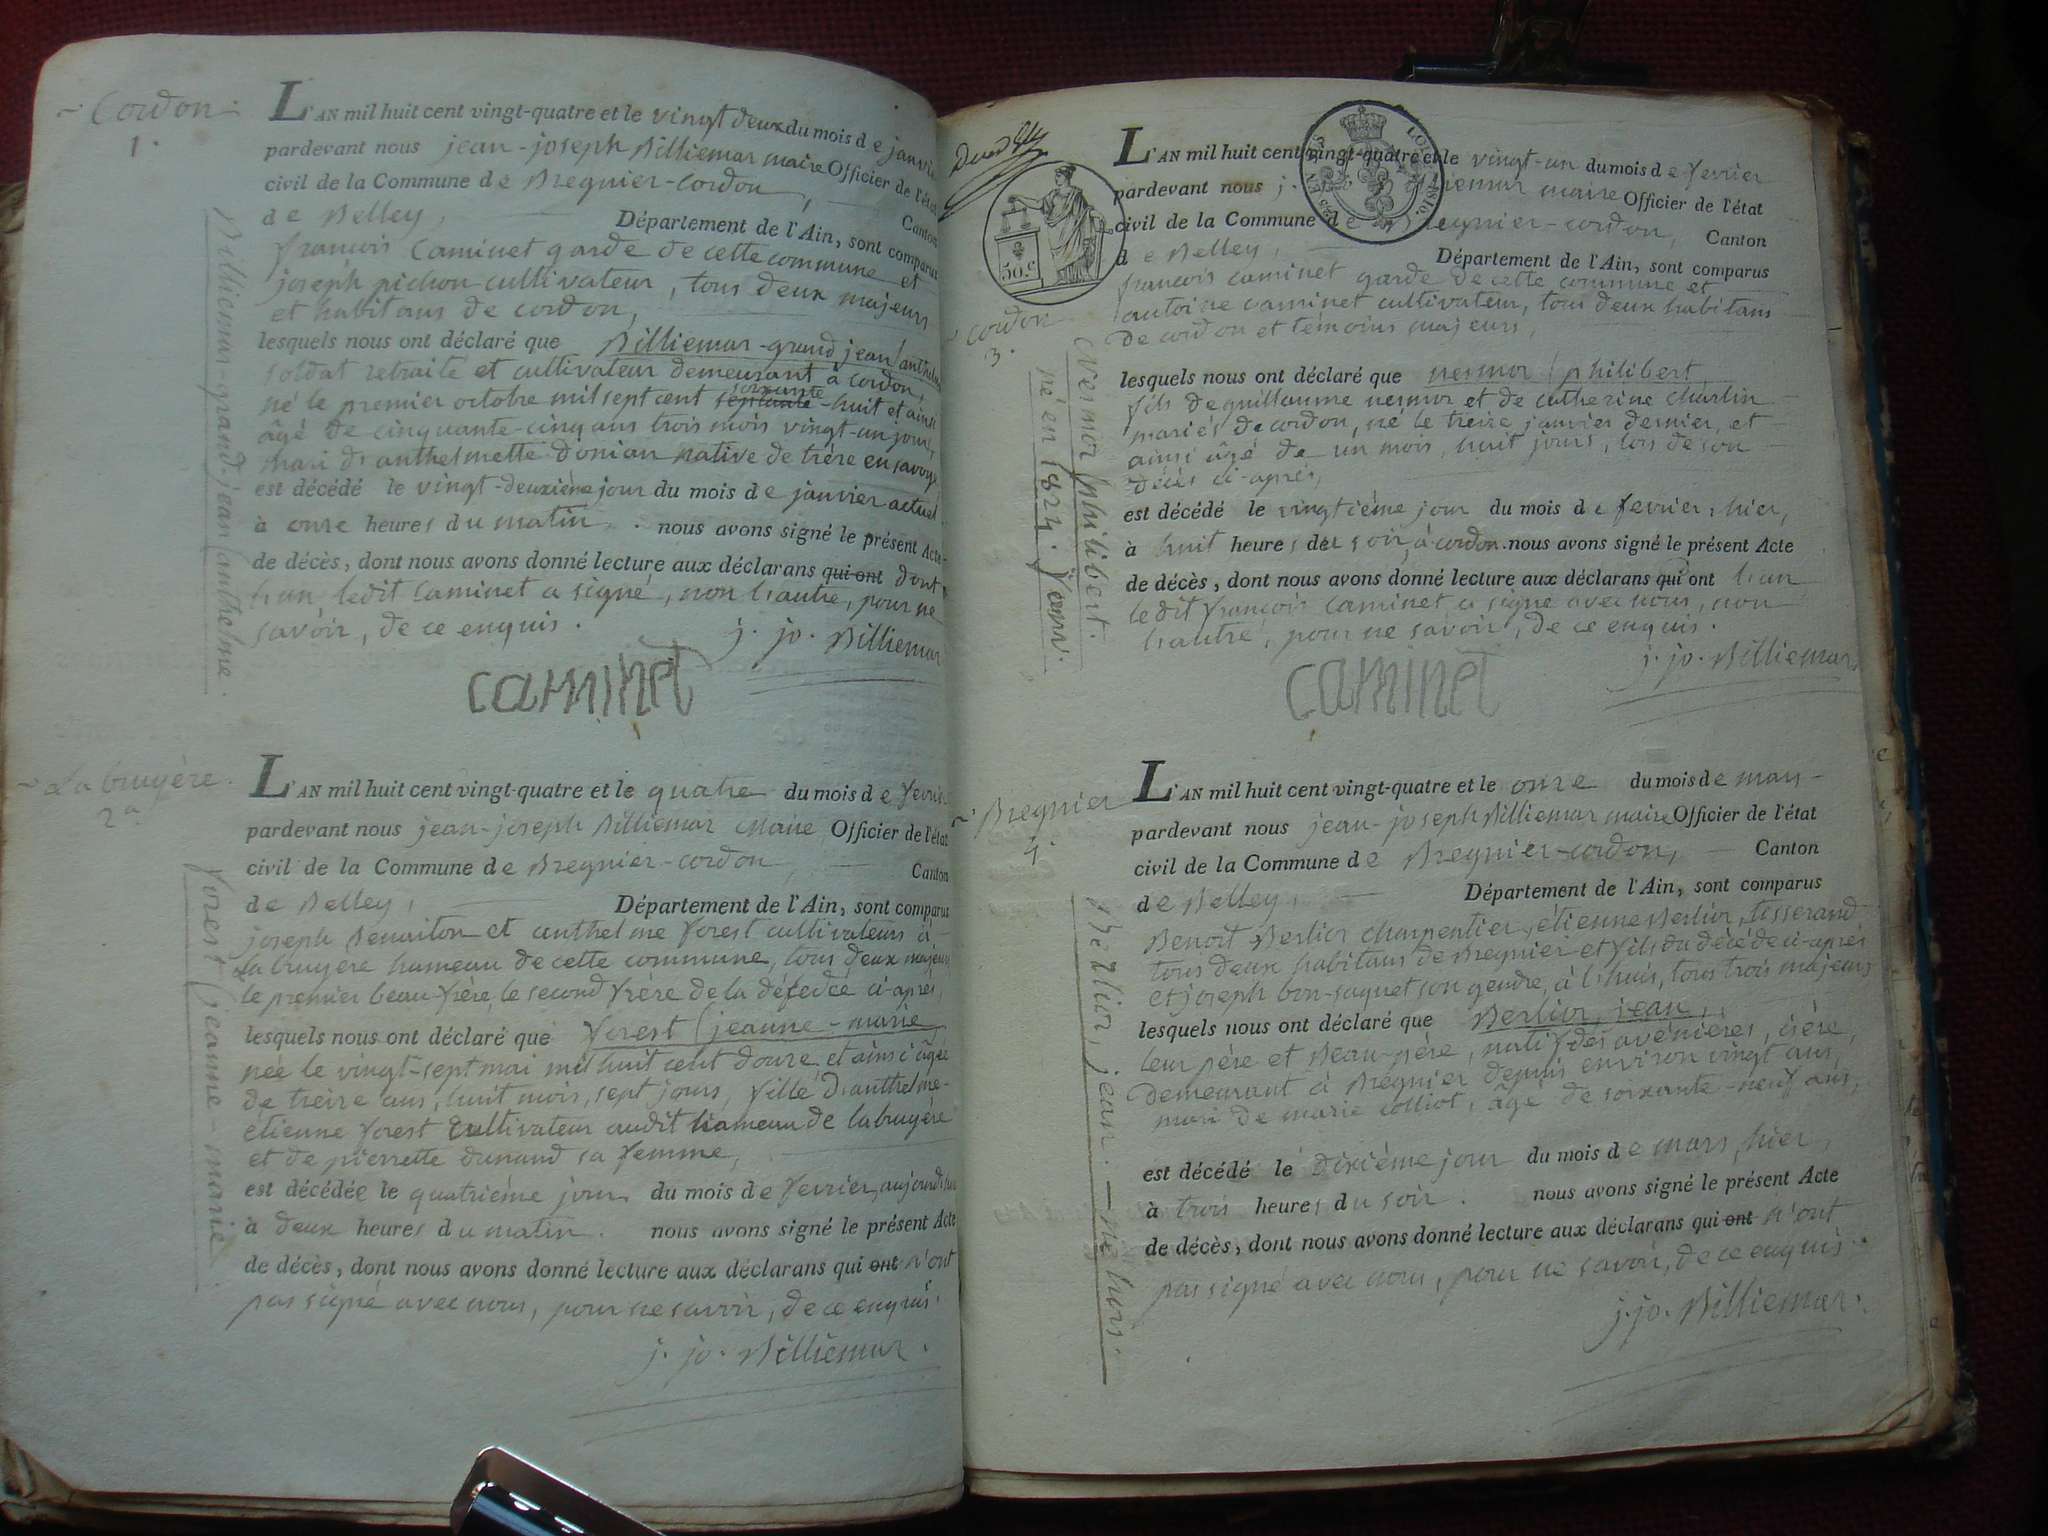 Cordon.
1.
L'AN mil huit cent vingt-quatre et le vingt deux du mois de janvier
pardevant nous jean-joseph Billiemar maire Officier de l'état
civil de la Commune de Bregnier-Cordon, Canton
de Belley, Département de l'Ain, sont comparus
francois Caminet garde de cette commune et
joseph pichon cultivateur, tous deux majeurs
et habitans de cordon,
lesquels nous ont déclaré que Billiemar-grand jean/anthelme
soldat retraité et cultivateur demeurant à cordon,
né le premier octobre mil sept cent septante soixante-huit et ainsi
âgé de cinquante-cinq ans trois mois vingt-un jours,
mari d'anthelmette donian native de trére en savoye
est décédé le vingt-deuxième jour du mois de janvier actuel
à onze heures du matin. nous avons signé le présent Acte
de décès, dont nous avons donné lecture aux déclarans qui ont dont
l'un, ledit Caminet a signé, non l'autre, pour ne
savoir, de ce enquis.
j. jo. Billiemar
caminet
Billiemar-grand-jean/anthelme.
La bruyère.
2
L'AN mil huit cent vingt-quatre et le quatre du mois de fevrier
pardevant nous jean-joseph Billiemar Maire Officier de l'état
civil de la Commune de Bregnier-cordon, Canton
de Belley, Département de l'Ain, sont comparus
joseph Benaiton et anthelme forest cultivateurs à
La bruyere hameau de cette commune, tous deux majeurs
le premier beau-frère, le second frère de la décedée ci-après,
lesquels nous ont déclaré que forest (jeanne-marie
née le vingt-sept mai mil huit cent douze et ainsi âgée
de treize ans, huit mois, sept jours, fille d'anthelme-
etienne forest cultivateur audit hameau de labruyère
et de pierrette dunand sa femme,
est décédée le quatrième jour du mois de fevrier, aujourd'hui
à deux heures du matin. nous avons signé le présent Acte
de décès, dont nous avons donné lecture aux déclarans qui ont n'ont
pas signé avec nous, pour ne savoir, de ce enquis.
j. jo. Billiemar.
forest (jeanne-marie
50.c
L'AN mil huit cent vingt-quatre et le vingt-un du mois de fevrier
pardevant nous j. maire Officier de l'état
civil de la Commune de Bregnier-cordon, Canton
de Belley, Département de l'Ain, sont comparus
francois caminet garde de cette commune et
antoine caminet cultivateur, tous deux habitans
de cordon et témoins majeurs,
cordon
3.
lesquels nous ont déclaré que nermor/philibert
fils de guillaume nermor et de catherine charlin
mariés de cordon, né le treize janvier dernier, et
ainsi âgé de un mois, huit jours, lors de son
décès ci-après,
est décédé le vingtième jour du mois de fevrier, hier,
à huit heures du soir, à cordon. nous avons signé le présent Acte
de décès, dont nous avons donné lecture aux déclarans qui ont l'un
ledit francois caminet a signé avec nous, non
l'autre, pour ne savoir, de ce enquis.
j. jo. Billiemar
caminet
Nermor/philibert.
né en 1824. janv.
Bregnier
4.
L'AN mil huit cent vingt-quatre et le onze du mois de mars
pardevant nous jean-joseph Billiemar maire Officier de l'état
civil de la Commune de Bregnier-cordon, Canton
de Belley, Département de l'Ain, sont comparus
Benoit Berlior charpentier, étienne Berlior, tisserand
tous deux habitans de Bregnier et fils du décédé ci-après
et joseph bon-saquet son gendre, à l'huis, tous trois majeurs
lesquels nous ont déclaré que Berlior, jean,
leur père et Beau-père, natif des avénieres, isère,
demeurant à Bregnier depuis environ vingt ans,
mari de marie colliot, âgé de soixante-neuf ans,
est décédé le dixième jour du mois de mars, hier,
à trois heures du soir. nous avons signé le présent Acte
de décès, dont nous avons donné lecture aux déclarans qui ont n'ont
pas signé avec nous, pour ne savoir, de ce enquis.
j. jo. Billiemar.
Berlior, jean. — né hors.